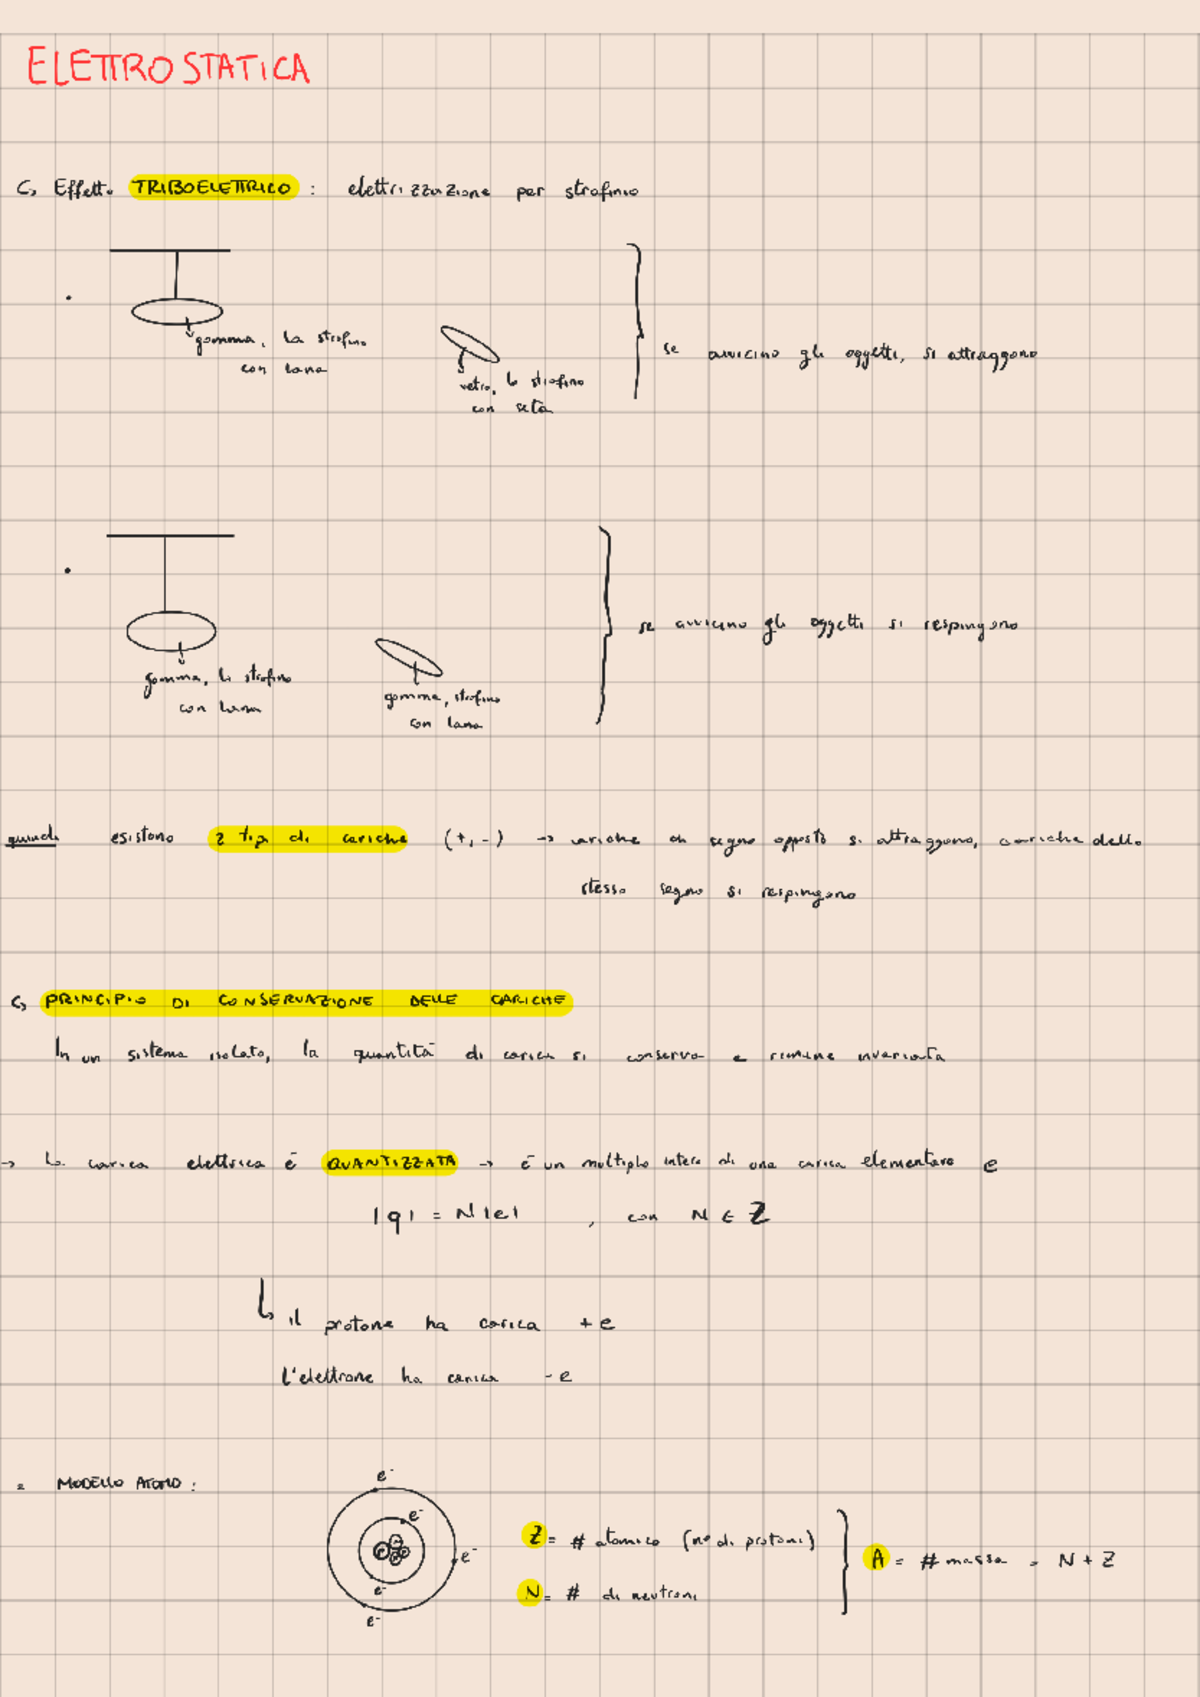 ELETTROSTATICA
↳ Effetto TRIBOELETTRICO : elettrizzazione per strofinio
gomma, la strofino
con lana
vetro, lo strofino
con seta
se avvicino gli oggetti, si attraggono
se avvicino gli oggetti si respingono
gomma, la strofino
con lana
gomma, strofino
con lana
quindi esistono 2 tipi di cariche (+, -) → cariche di segno opposto si attraggono, cariche dello
stesso segno si respingono
↳ PRINCIPIO DI CONSERVAZIONE DELLE CARICHE
In un sistema isolato, la quantità di carica si conserva e rimane invariata
→ La carica elettrica è QUANTIZZATA → è un multiplo intero di una carica elementare e
|q| = N|e| , con N ∈ Z
↳ il protone ha carica +e
l'elettrone ha carica -e
MODELLO ATOMO :
e⁻
e⁻
e⁻
e⁻
e⁻
Z = # atomico (n° di protoni)
N = # di neutroni
A = # massa = N + Z